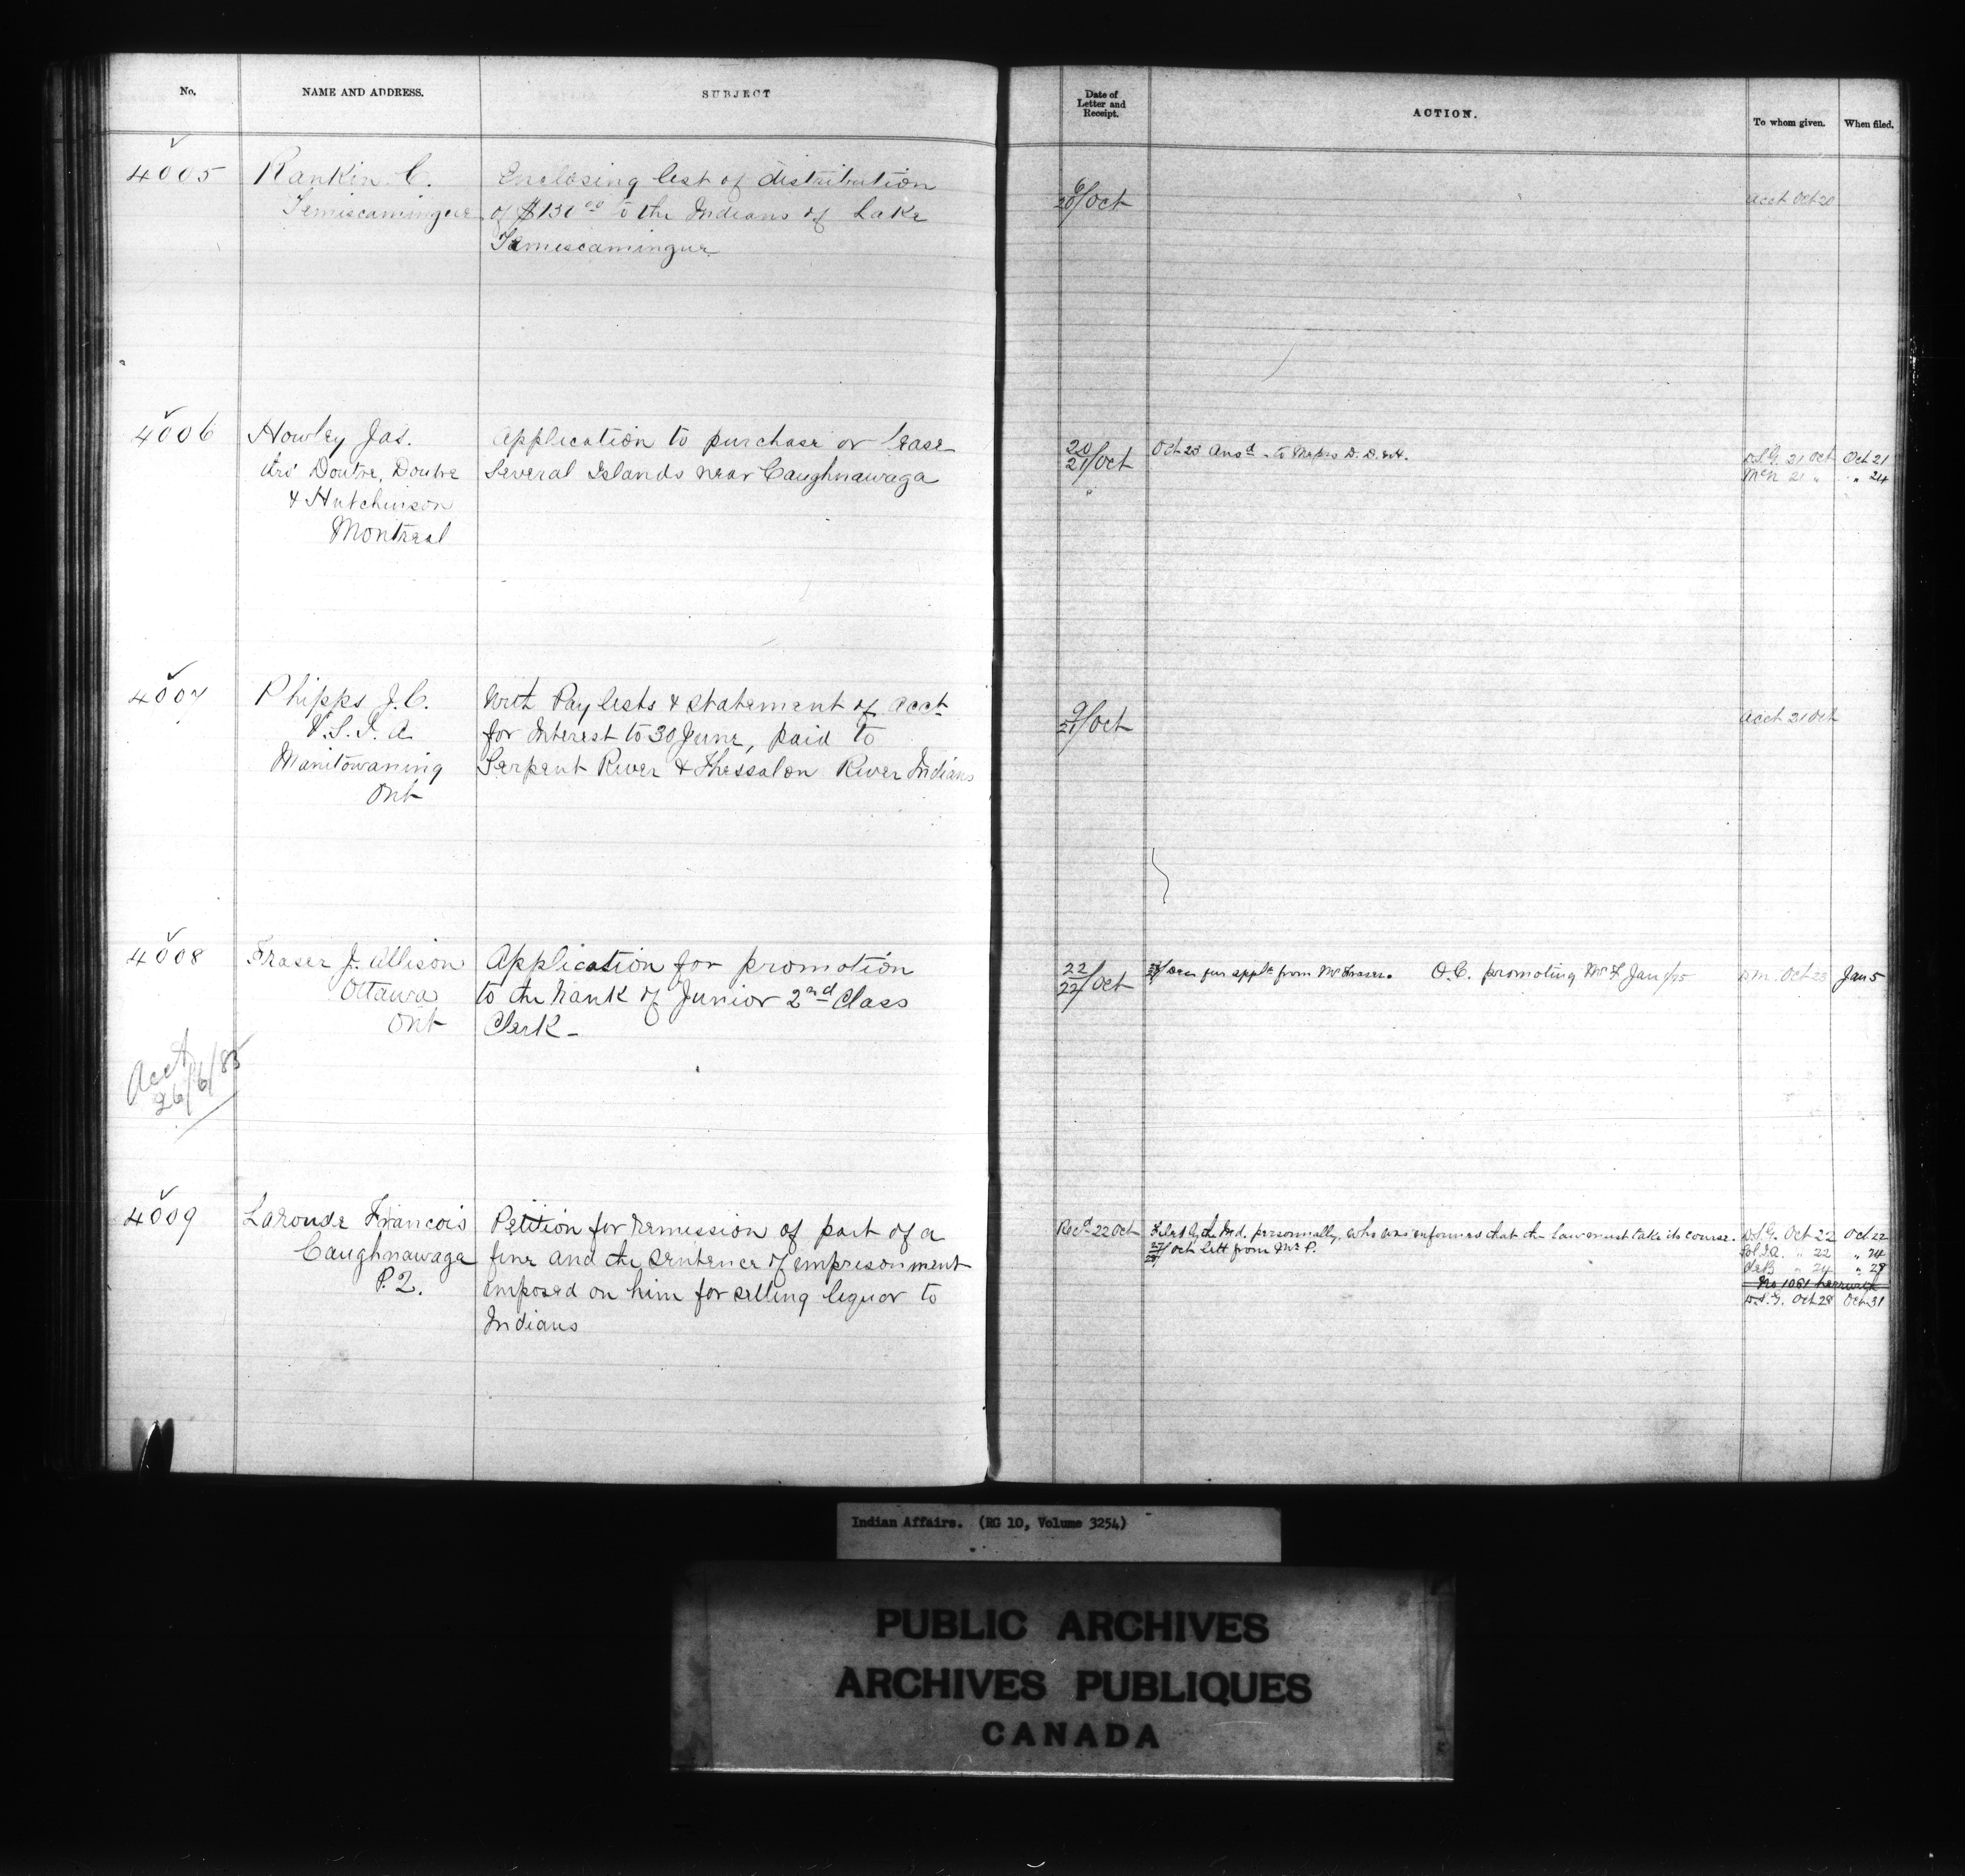 No.
NAME AND ADDRESS.
SUBJECT
Date of
Letter and
Receipt.
ACTION.
To whom given.
When filed.
4005
Rankin C.
Temiscamingue
Enclosing list of distribution
of $131 00 to the Indians of Lake
Temiscamingue
6/20 Oct
Acct Oct 20
4006
Howley Jas.
Doutre, Doutre
& Hutchinson
Montreal
Application to purchase or lease
Several Islands near Caughnawaga
20/21 Oct
"
Oct 23 Ansd - to Messrs D. D. & H.
D.S.G. 21 Oct Oct 21
McN 21 " " 24
4007
Phipps J.C.
V.S.I.A.
Manitowaning
Ont
With Pay lists & statement of acct
for Interest to 30 June, paid to
Serpent River & Thessalon River Indians
9/21 Oct
Acct 21 Oct
4008
Fraser J. Allison
Ottawa
Ont
Application for promotion
to the Rank of Junior 2nd Class
Clerk -
22/22 Oct
fur applt from Mr Fraser. O.C. promoting Mr F Jan /85
D.M. Oct 23 Jan 5
Acct
26/6/85
4009
Laronde Francois
Caughnawaga
P.Q.
Petition for remission of part of a
fine and the sentence of imprisonment
imposed on him for selling liquor to
Indians
Recd 22 Oct
personally, who was informed that the Law must take its course.
Oct lett from Mr P.
D.S.G. Oct 22 Oct 22
" 22 " 24
" 24 " 28
No 1081
D.S.G. Oct 28 Oct 31
Indian Affairs. (RG 10, Volume 3254)
PUBLIC ARCHIVES
ARCHIVES PUBLIQUES
CANADA